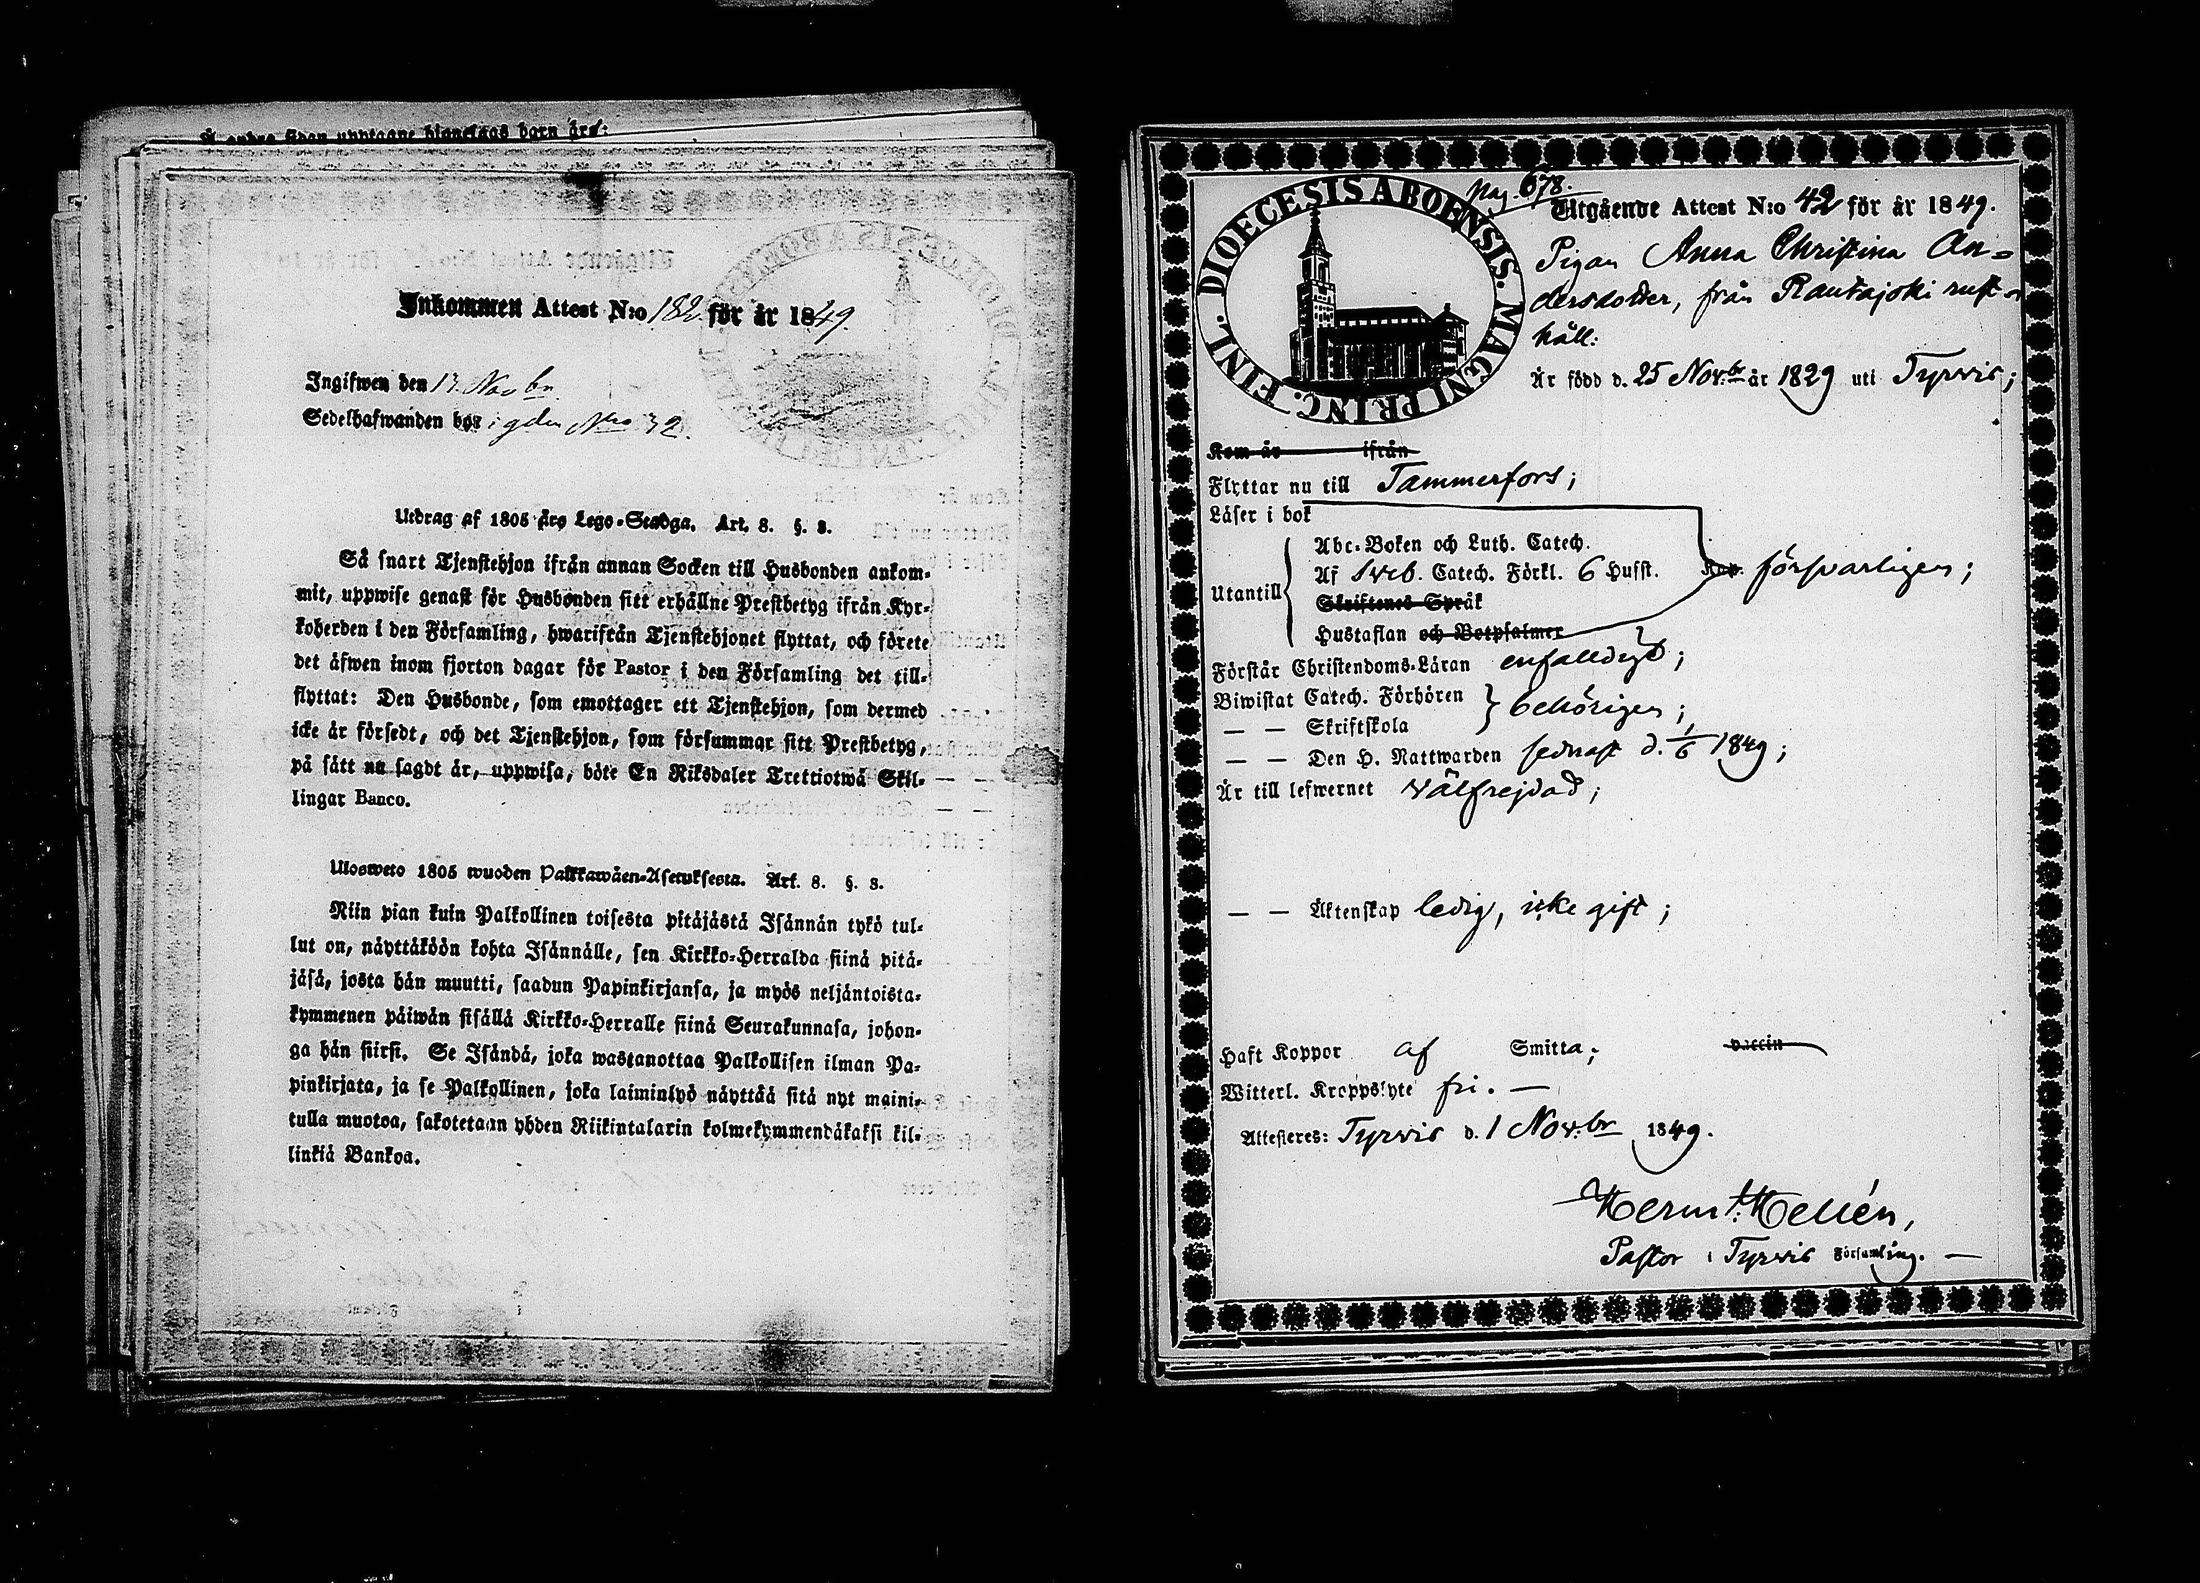 Å andra sidan upptagne blanckaas barn äro:
Inkommen Attest N:o 182 för år 1849.
Ingifwen den 17 Novbr
Sedelhafwanden bor i gden Nro 32.
Utdrag af 1805 års Lego-Stadga. Art. 8. §. 8.
Så snart Tjenstehjon ifrån annan Socken till Husbonden ankom-
mit, uppwise genast för Husbonden sitt erhållne Prestbetyg ifrån Kyr-
koherden i den Församling, hwarifrån Tjenstehjonet flyttat, och förete
det äfwen inom fjorton dagar för Pastor i den Församling det till-
flyttat: Den Husbonde, som emottager ett Tjenstehjon, som dermed
icke är försedt, och det Tjenstehjon, som försummar sitt Prestbetyg,
på sätt nu sagdt är, uppwisa, böte En Riksdaler Trettiotwå Skil-
lingar Banco.
Ulosweto 1805 wuoden Palkkawäen-Asetuksesta. Art. 8. §. 8.
Niin pian kuin Palkollinen toisesta pitäjästä Isännän tykö tul-
lut on, näyttäköön kohta Isännälle, sen Kirkko-Herralda siinä pitä-
jäsä, josta hän muutti, saadun Papinkirjansa, ja myös neljäntoista-
kymmenen päiwän sisällä Kirkko-Herralle siinä Seurakunnasa, johon-
ga hän siirsi. Se Isändä, joka wastanottaa Palkollisen ilman Pa-
pinkirjata, ja se Palkollinen, joka laiminlyö näyttää sitä nyt maini-
tulla muotoa, sakotetaan yhden Riikintalarin kolmekymmendäkaksi kil-
linkiä Bankoa.
DIOECESIS ABOENSIS. MAGNI PRINC. FINL.
Pag. 678.
Utgående Attest N:o 42 för år 1849.
Pigan Anna Christina An-
dersdotter, från Rautajoki rust-
håll:
Är född d. 25 Nov:br år 1829 uti Tyrvis;
Kom år ifrån
Flyttar nu till Tammerfors;
Läser i bok
Abc-Boken och Luth. Catech.
Utantill Af Sveb. Catech. Förkl. 6 Husst. försvarligen;
Skriftenes Språk
Hustaflan och Botpsalmer
Förstår Christendoms-Läran enfalldigt;
Biwistat Catech. Förhören behörigen;
— — Skriftskola
— — Den H. Nattwarden sednast d. 1/6 1849;
Är till lefwernet välfrejdad;
— — Äktenskap ledig, icke gift;
Haft Koppor af Smitta; vaccin
Witterl. Kroppslyte fri. —
Attesteres: Tyrvis d. 1 Nov:br 1849.
Herm. Hellén,
Pastor i Tyrvis Församling. —